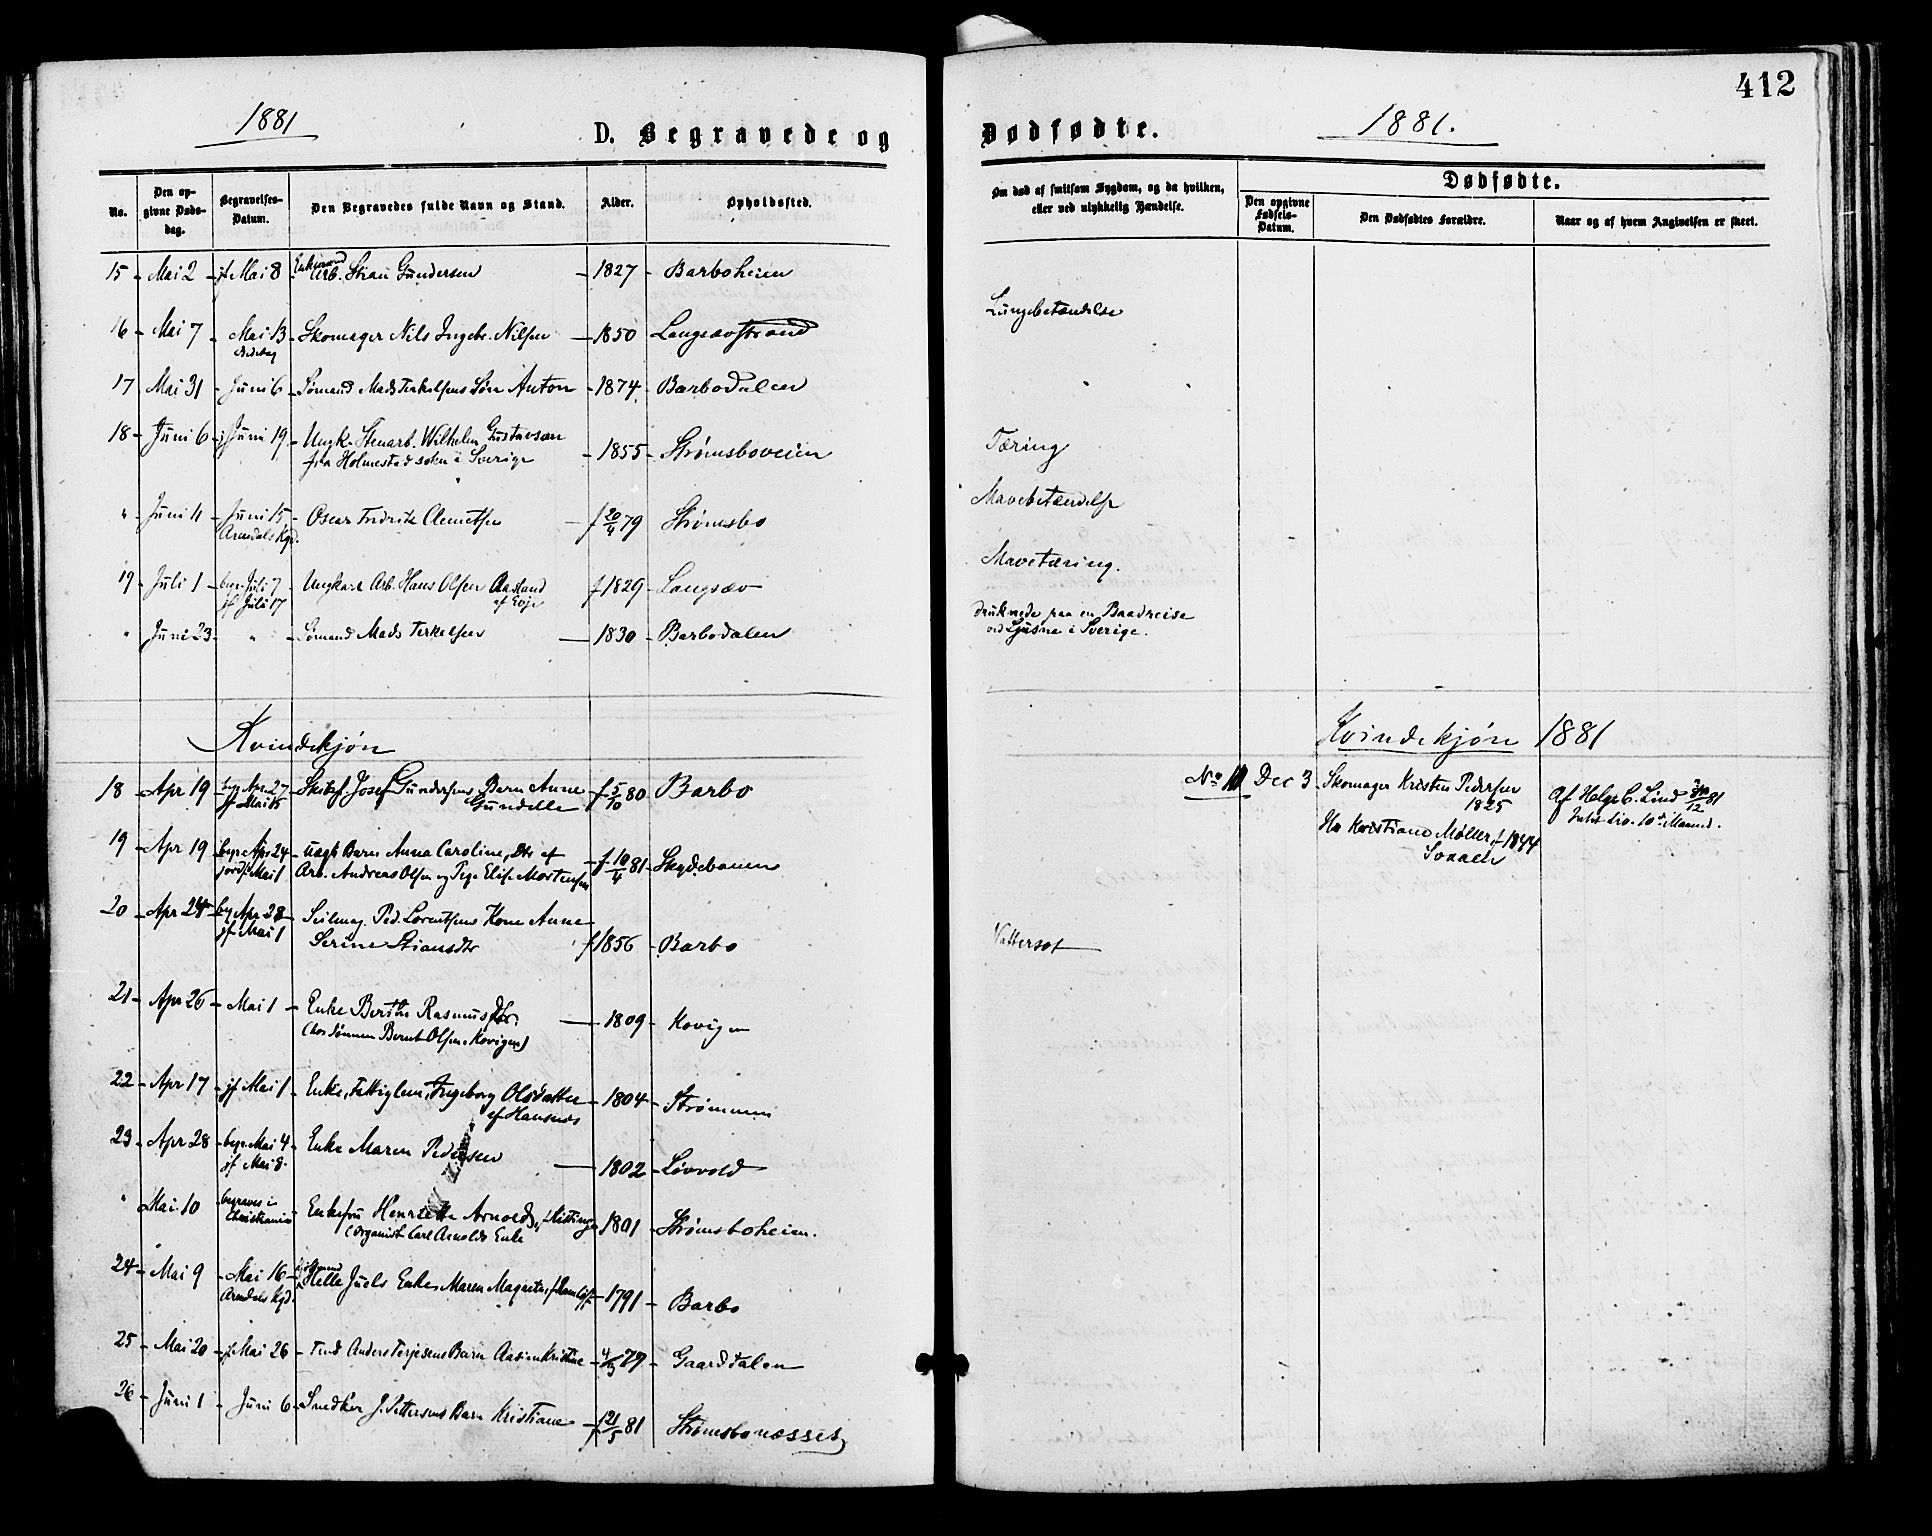 1881
D. Begravede og
No.
Den opgivne Døds-dag.
Begravelses-Datum.
Den Begravedes fulde Navn og Stand.
Alder.
Opholdssted.
15 - Mai 2 - jf Mai 8 - Enkemand Arb. Stian Gundersen - 1827 - Barboheien
16 - Mai 7 - Mai 13 - Skomager Nils Ingebr. Nilsen - 1850 Langsævstrand
Bededag
17 Mai 31 - Juni 6 - Sømand Mads Terkelsens Søn Anton - 1874 - Barbodalen
18 - Juni 6 - j Juni 19 - Ungk. Stenarb. Wilhelm Gustavson
fra Holmestad sokn i Sverige - 1855 - Strømsboveien
" - Juni 11 - Juni 15 - Oscar Fredrik Clemetsen - f 20/4 79 Strømsbo
Arendals Kgd.
19 - Juli 1 - begr Juli 7 - Ungkarl Arb. Hans Olsen Aasland f 1829 - Langsæv
jf Juli 17 af Evje
" Juni 23 - " - Sømand Mads Terkelsen - 1830 - Barbodalen
Kvindekjøn
18 - Apr 19 - begr Apr 27 - Josef Gundersens Barn Anne f 5/10 80 Barbo
jf Mai 15 Gundelle
19 - Apr 19 - begr Apr 24 - uægt Barn Anna Caroline, Dtr af f 10/4 81 - Skydebanen
jordf Mai 1 Arb. Andreas Olsen og Pige Elise Mortensen
20 - Apr 24 - beg Apr 28 - Seilmag. Ped. Lorentsens Kone Anne
jf Mai 1 Serine Stiansdtr f 1856 - Barbo
21 - Apr 26 - Mai 1 - Enke Berthe Rasmusdtr. - 1809 - Kovigen
(hos Sønnen Bernt Olsen, Kovigen)
22 - Apr 17 - jf Mai 1 - Enke, Fattiglem, Ingeborg Olsdatter - 1804 - Strømmen
af Hansnes
23 - Apr 28 - begr Mai 4 - Enke Maren Pedersen - 1802 - Løvvold
jf Mai 8.
" Mai 10 begraves i Christiania - Enkefru Henriette Arnold, f 1801 - Strømsboheien.
(Organist Carl Arnolds Enke
24 - Mai 9 - Mai 16 - Helle Juels Enke Maren Magrete, - 1791 - Barbo
Arendals Kgd.
25 - Mai 20 - jf Mai 26 - Anders Terjesens Barn Aasine Kristine - 4/3 79 - Gaarddalen
26 - Juni 1 - Juni 6 - Snedker J. Pettersens Barn Kristiane - f 21/5 81 Strømsbonæsset
412
Dødfødte.
1881.
Om død af smitsom Sygdom, og da hvilken, eller ved ulykkelig Hændelse.
Dødfødte.
Den opgivne Fødsels-Datum.
Den Dødfødtes Forældre.
Naar og af hvem Angivelsen er skeet.
Lungebetændelse
Tæring
Mavebetændelse
Mavetæring.
druknede paa en Baadreise
ved Ljusne i Sverige.
Kvindekjøn 1881
No 1 Dec 3 Skomager Kristen Pedersen
1825
Af Helge C. Lind 81
Hu Kristiane Møller f 1844
Vattersot